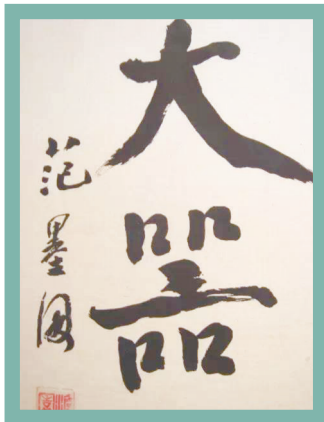 大器
范墨